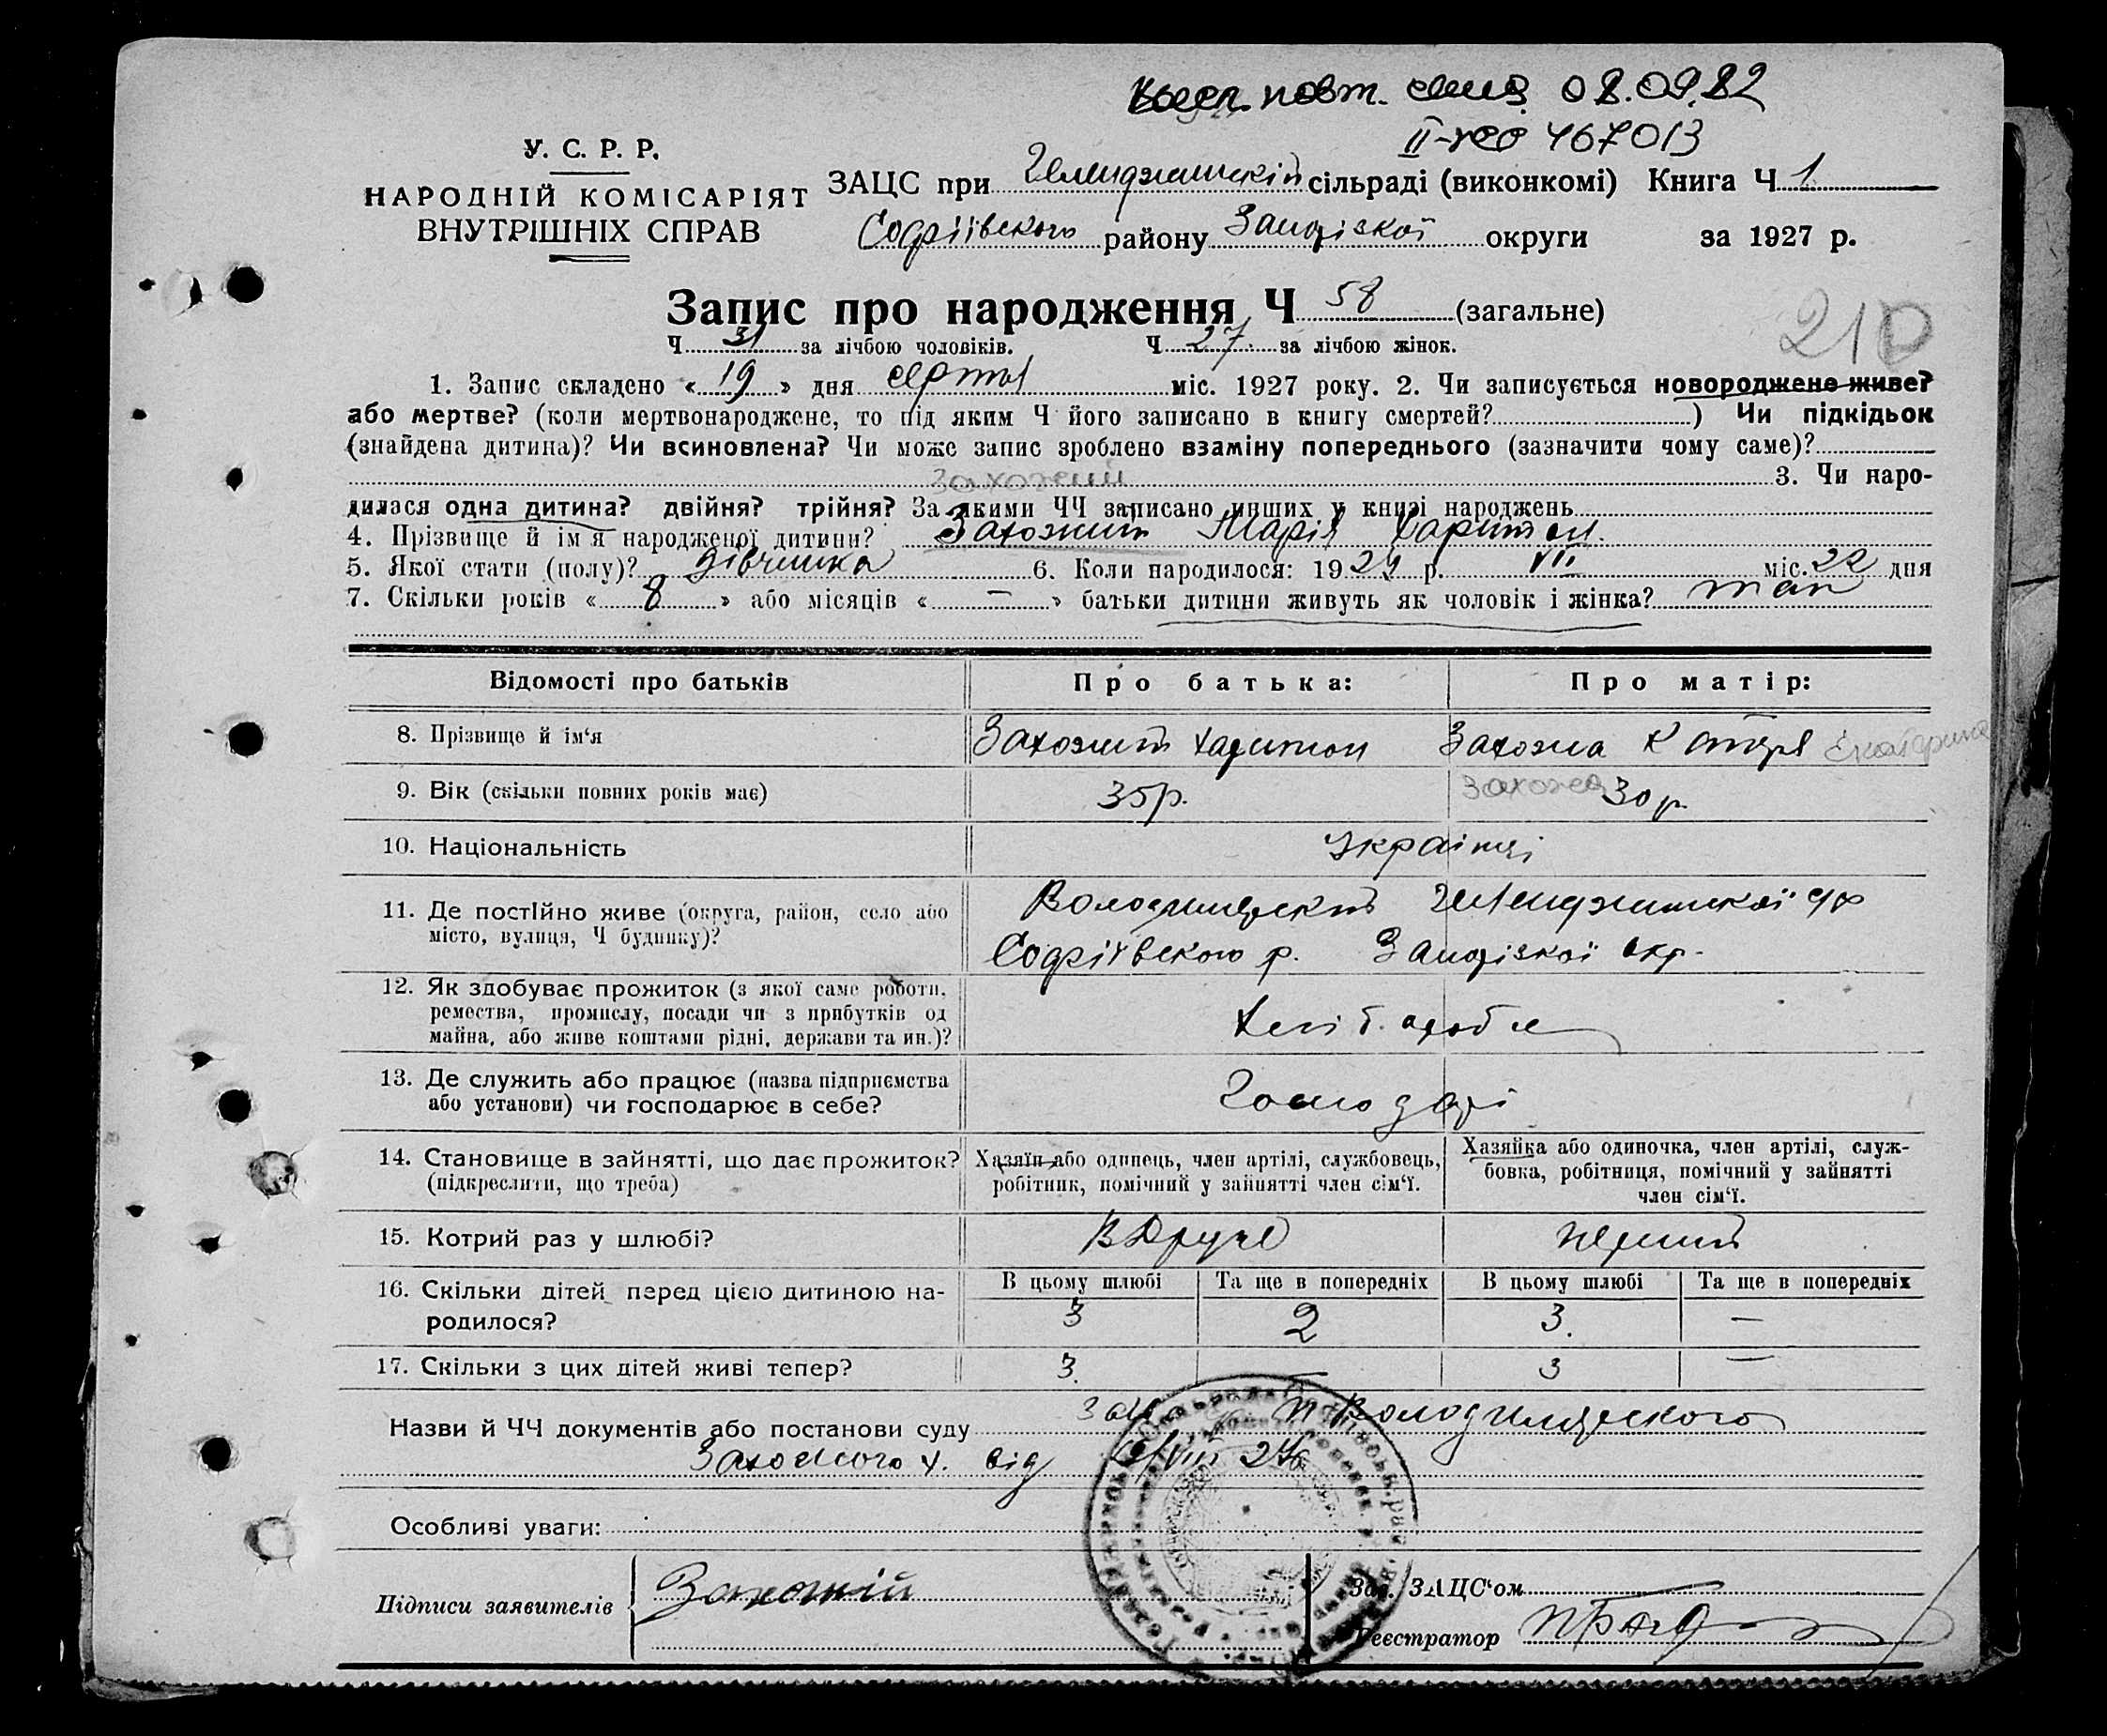 повт. 08.09.82
II- 467013
У. С. Р. Р.
НАРОДНІЙ КОМІСАРІЯТ
ВНУТРІШНІХ СПРАВ
ЗАЦС при сільраді (виконкомі) Книга Ч 1
Софіївського району Запорізкої округи за 1927 р.
Запис про народження Ч 58 (загальне)
Ч 31 за лічбою чоловіків. Ч 27 за лічбою жінок.
210
1. Запис складено « 19 » дня серпня міс. 1927 року. 2. Чи записується новороджене живе?
або мертве? (коли мертвонароджене, то під яким Ч його записано в книгу смертей?) Чи підкідьок
(знайдена дитина)? Чи всиновлена? Чи може запис зроблено взаміну попереднього (зазначити чому саме)?
Захожий 3. Чи наро-
дилася одна дитина? двійня? трійня? За якими ЧЧ записано инших у книзі народжень
4. Прізвище й ім'я народженої дитини? Захожий Марія Харитон.
5. Якої стати (полу)? дівчинка 6. Коли народилося: 1927 р. VII міс. 22 дня
7. Скільки років « 8 » або місяців « — » батьки дитини живуть як чоловік і жінка? так
Відомості про батьків Про батька: Про матір:
8. Прізвище й ім'я Захожий Харитон Захожа Катря Екатерина
9. Вік (скільки повних років має) 35р. Захожая 30 р.
10. Національність Українці
11. Де постійно живе (округа, район, село або
місто, вулиця, Ч будинку)?
Софіївського р. Запорізкої окр.
12. Як здобуває прожиток (з якої саме роботи,
ремества, промислу, посади чи з прибутків од
майна, або живе коштами рідні, держави та ин.)?
Хліб.
13. Де служить або працює (назва підприємства
або установи) чи господарює в себе?
Господарі
14. Становище в зайнятті, що дає прожиток?
(підкреслити, що треба)
Хазяїн або одинець, член артілі, службовець,
робітник, помічний у зайнятті член сім'ї.
Хазяйка або одиночка, член артілі, служ-
бовка, робітниця, помічний у зайнятті
член сім'ї.
15. Котрий раз у шлюбі? Вдруге перший
16. Скільки дітей перед цією дитиною на-
родилося?
В цьому шлюбі Та ще в попередніх В цьому шлюбі Та ще в попередніх
3 2 3. —
17. Скільки з цих дітей живі тепер? 3. — 3 —
Назви й ЧЧ документів або постанови суду
Захожого Х. від
Особливі уваги:
Підписи заявителів Захожій
Зав. ЗАЦС'ом
Реєстратор